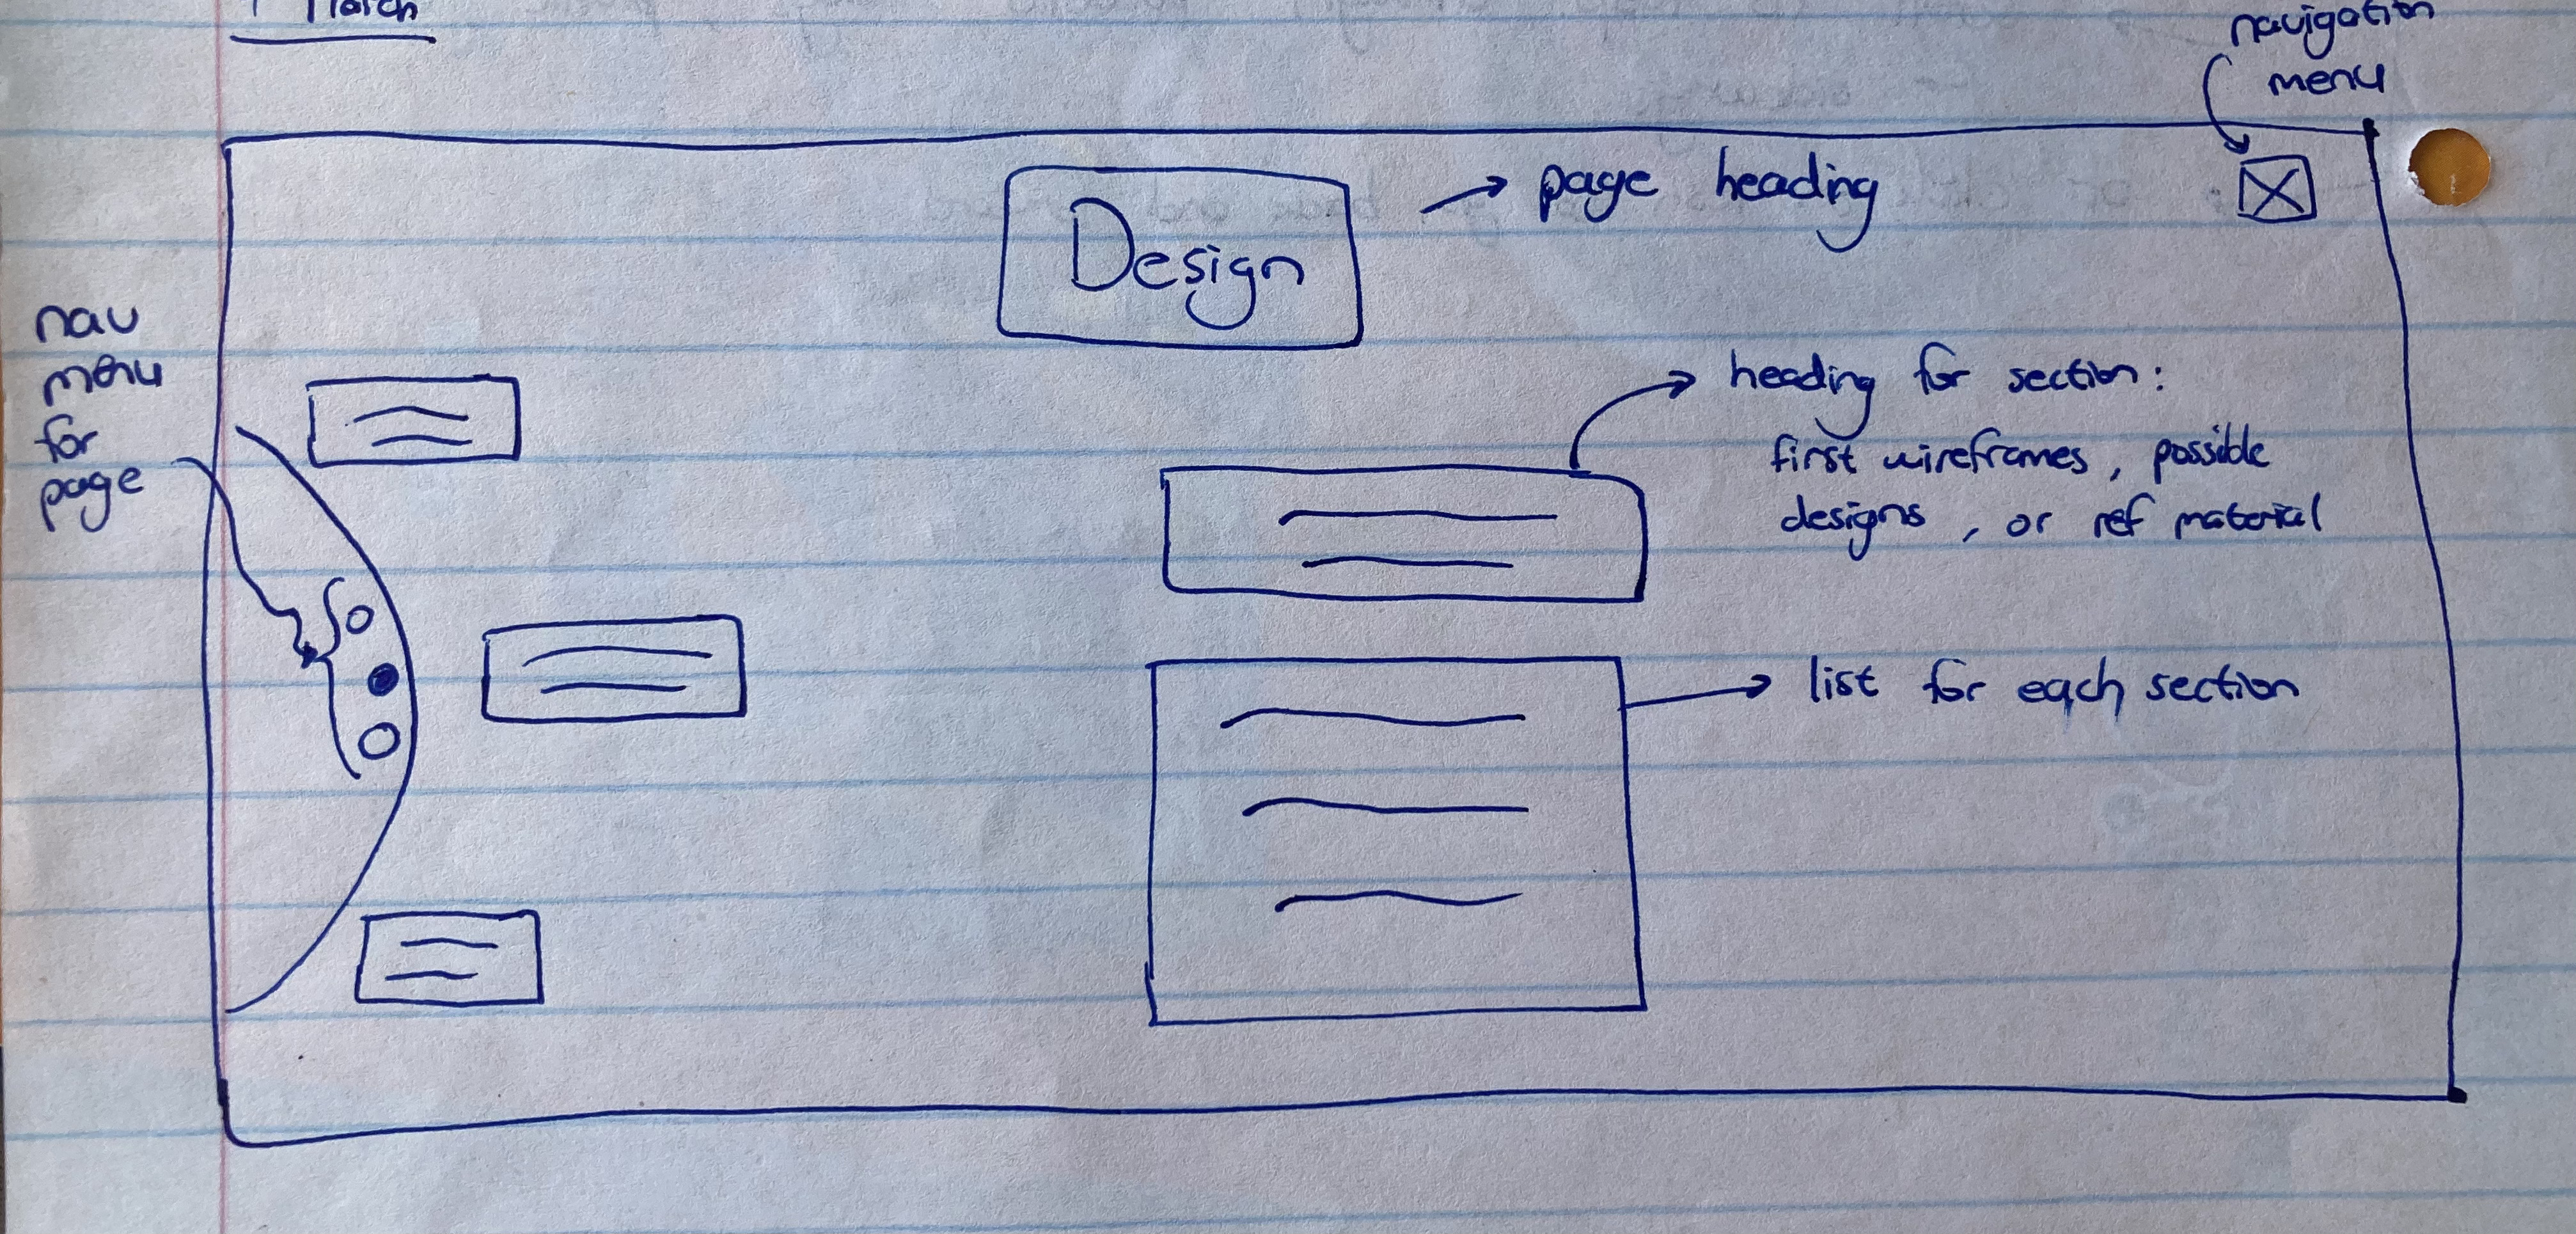 March
navigation
menu
Design
page heading
nav
menu
for
page
heading for section:
first wireframes, possible
designs, or ref material
list for each section